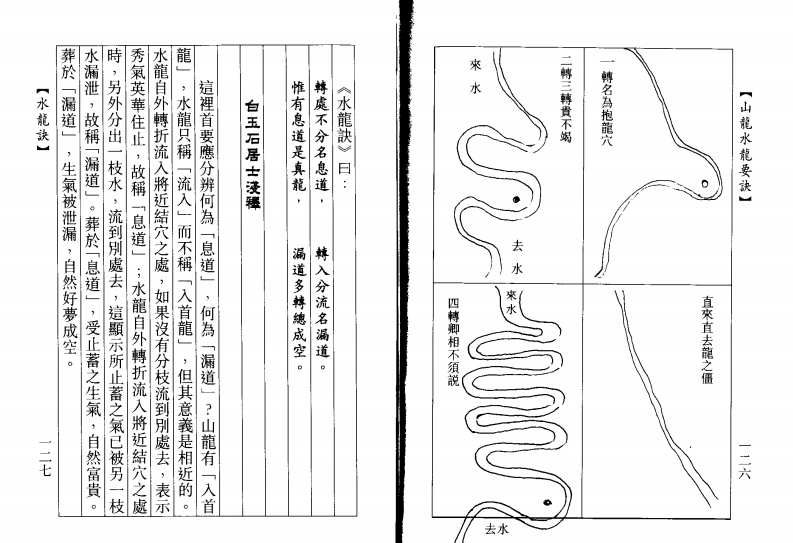 【山龍水龍要訣】
一二六
一轉名為抱龍穴
二轉三轉貴不竭
來水
去水
直來直去龍之僵
四轉卿相不須説
來水
去水
《水龍訣》曰：
轉處不分名息道，　轉入分流名漏道。
惟有息道是真龍，　漏道多轉總成空。
白玉石居士淺釋
這裡首要應分辨何為「息道」，何為「漏道」？山龍有「入首
龍」，水龍只稱「流入」而不稱「入首龍」，但其意義是相近的。
水龍自外轉折流入將近結穴之處，如果沒有分枝流到別處去，表示
秀氣英華住止，故稱「息道」；水龍自外轉折流入將近結穴之處
時，另外分出一枝水，流到別處去，這顯示所止蓄之氣已被另一枝
水漏泄，故稱「漏道」。葬於「息道」，受止蓄之生氣，自然富貴。
葬於「漏道」，生氣被泄漏，自然好夢成空。
【水龍訣】
一二七